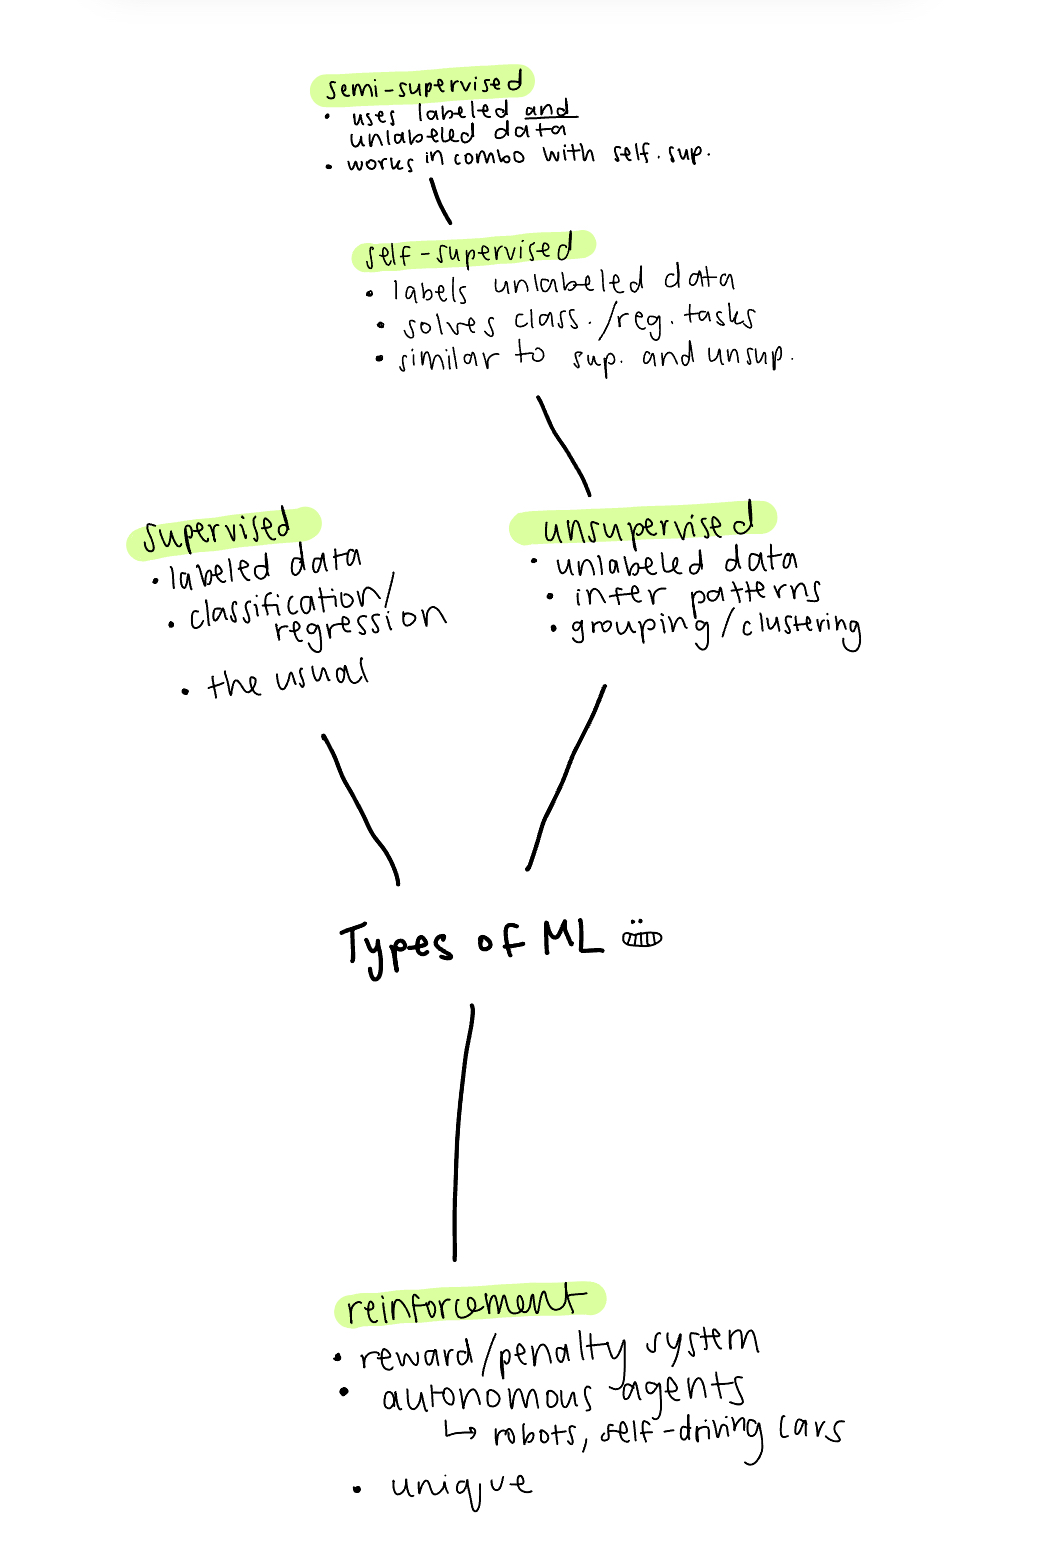 semi-supervised
• uses labeled and
unlabeled data
• works in combo with self. sup.
self-supervised
• labels unlabeled data
• solves class./reg. tasks
• similar to sup. and unsup.
supervised
• labeled data
• classification/
regression
• the usual
unsupervised
• unlabeled data
• infer patterns
• grouping/clustering
Types of ML
reinforcement
• reward/penalty system
• autonomous agents
↳ robots, self-driving cars
• unique